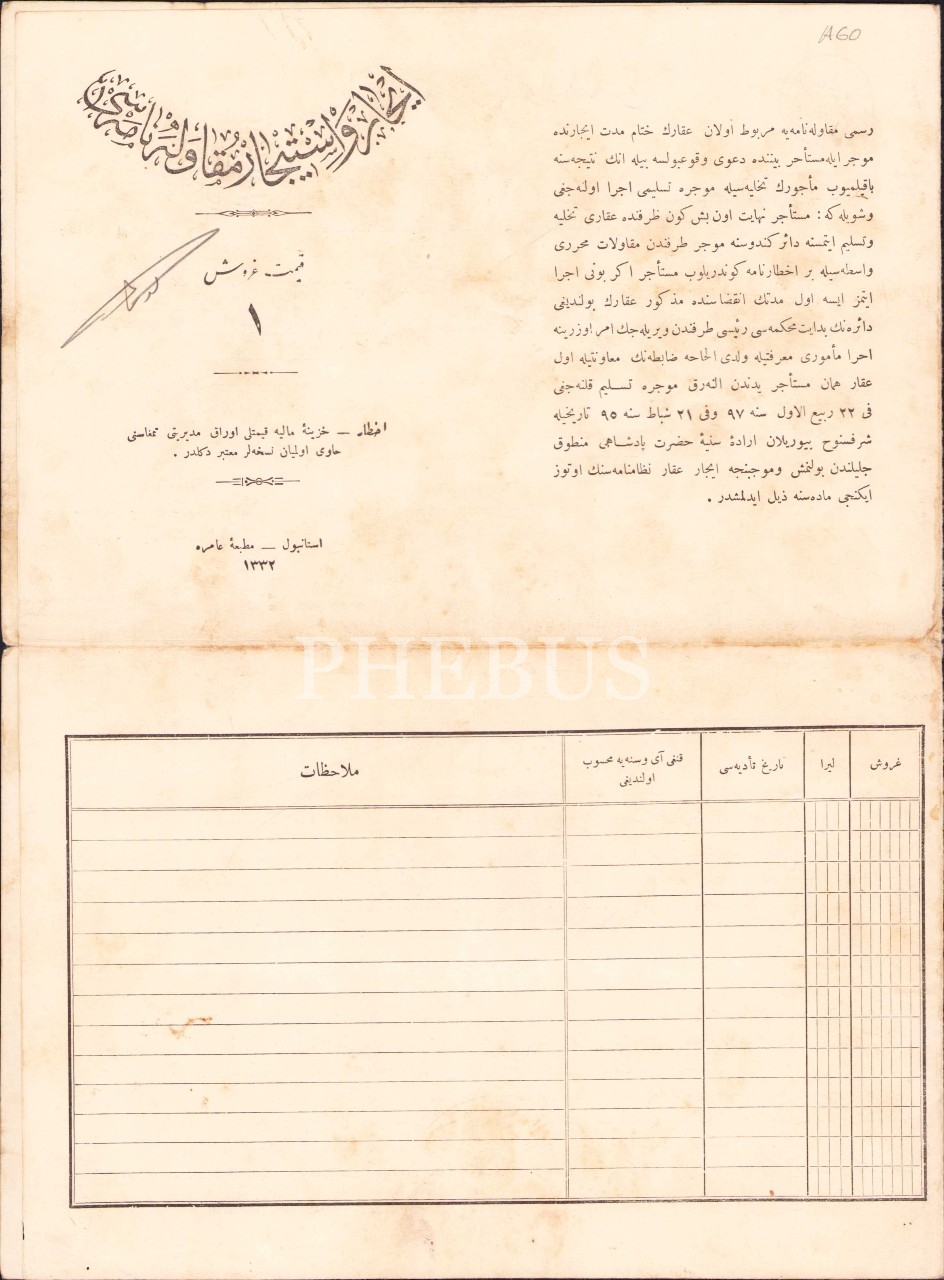 A60
ایجار و استیجار مقاوله‌نامه‌سی
قیمت غروش
١
اخطار — خزینهٔ مالیه قیمتلی اوراق مدیریتی تمغاسنی
حاوی اولمیان نسخه‌لر معتبر دکلدر .
استانبول — مطبعهٔ عامره
١٣٣٢
رسمی مقاوله‌نامه‌یه مربوط اولان عقارك ختام مدت ایجارنده
موجر ایله مستأجر بیننده دعوی وقوعبولسه بیله انك نتیجه‌سنه
باقیلمیوب مأجورك تخلیه‌سیله موجره تسلیمی اجرا اولنه‌جغی
وشویله‌که : مستأجر نهایت اون بش کون ظرفنده عقاری تخلیه
وتسلیم ایتمسنه دائر کندوسنه موجر طرفندن مقاولات محرری
واسطه‌سیله بر اخطارنامه کوندریلوب مستأجر اکر بونی اجرا
ایتمز ایسه اول مدتك انقضاسنده مذکور عقارك بولندیغی
دائره‌نك بدایت محکمه‌سی رئیسی طرفندن ویریله‌جك امر اوزرینه
اجرا مأموری معرفتیله ولدی الحاجه ضابطه‌نك معاونتیله اول
عقار همان مستأجر یدندن النه‌رق موجره تسلیم قلنه‌جغی
فی ٢٢ ربیع الاول سنه ٩٧ وفی ٢١ شباط سنه ٩٥ تاریخیله
شرفسنوح بیوریلان ارادهٔ سنیهٔ حضرت پادشاهی منطوق
جلیلندن بولنمش وموجبنجه ایجار عقار نظامنامه‌سنك اوتوز
ایکنجی ماده‌سنه ذیل ایدلمشدر .
PHEBUS
غروش
لیرا
تاریخ تأدیه‌سی
قنغی آی وسنه‌یه محسوب
اولندیغی
ملاحظات